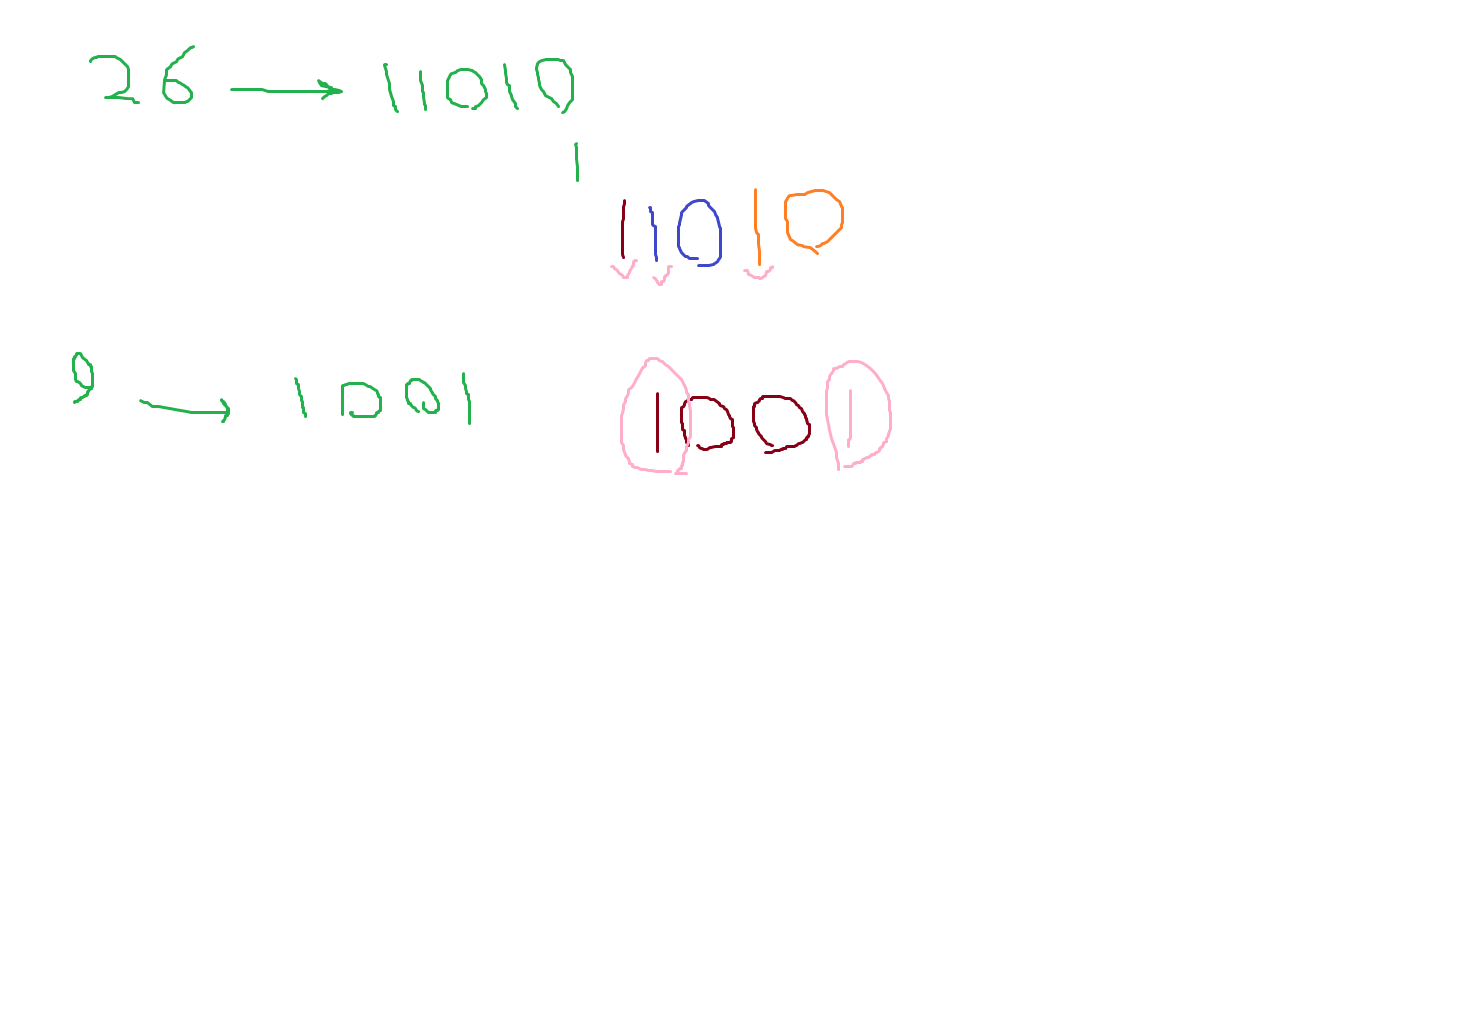 26 → 11010
1
11010
9 → 1001 1001